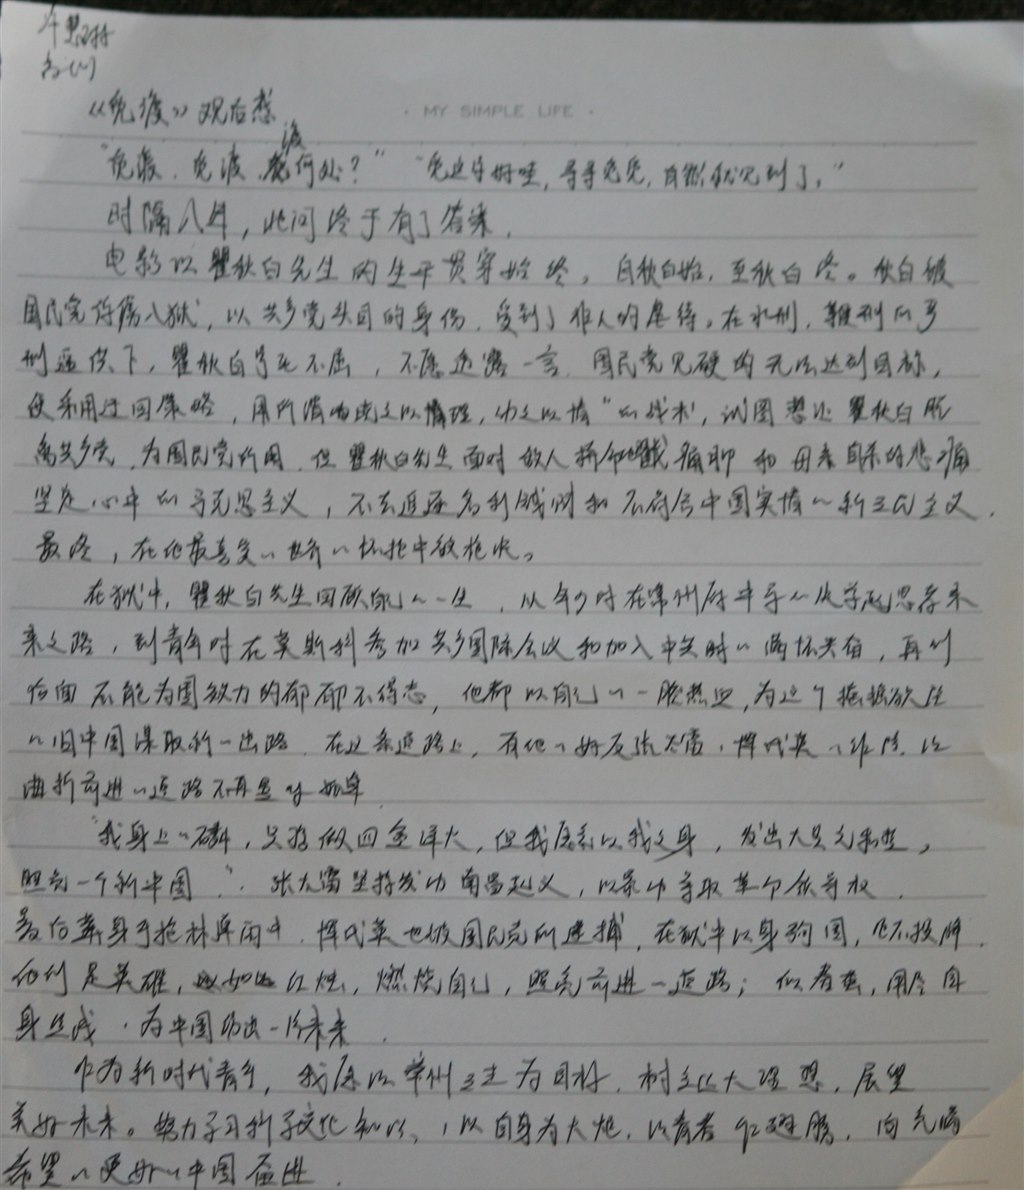 《觅渡》观后感
MY SIMPLE LIFE
"觅渡,觅渡,渡何处?" "觅这字好哇,寻寻觅觅,自然就见到了。"
时隔八年,此问终于有了答案。
电影以瞿秋白先生的生平贯穿始终,自秋白始,至秋白终。秋白被
国民党 入狱,以共产党头目的身份,受到了非人的虐待。在水刑,鞭刑的多
刑逼供下,瞿秋白宁死不屈,不愿透露一言。国民党见硬的无法达到目标,
便采用迂回策略,用所谓 之以情理,动之以情"的战术,试图 瞿秋白脱
离共产党,为国民党所用。但瞿秋白先生面对敌人 和母亲自杀的悲痛
坚定心中的马克思主义,不去追逐名利钱财和不符合中国实情的新三民主义。
最终,在他最喜爱的 的怀抱中被枪决。
在狱中,瞿秋白先生回顾自己的一生,从年少时在常州府中学的 思存未
来之路,到青年时在莫斯科参加共产国际会议和加入中共时的满怀 ,再到
后面不能为国效力的郁郁不得志,他都以自己的一腔热血,为这个摇摇欲坠
的旧中国谋取新的出路。在这条道路上,有他的好友张太雷、恽代英的 ,让
曲折前进的道路不再显得孤单。
"我身上的磷,只够做四盒洋火,但我愿意以我之身,发出大点光和热,
照亮一个新中国。"张太雷坚持发动南昌起义,以 争取革命领导权,
最后葬身于枪林弹雨中。恽代英也被国民党所逮捕,在狱中以身殉国,
他们是英雄,如 红烛,燃烧自己,照亮前进的道路;似春蚕,用尽自
身丝线,为中国 出一份未来。
作为新时代青年,我应以常州三杰为目标,树立 大理想,展望
美好未来。努力学习科学文化知识,以自身为火炬,以青春 翅膀,向充满
希望的更好的中国奋进。